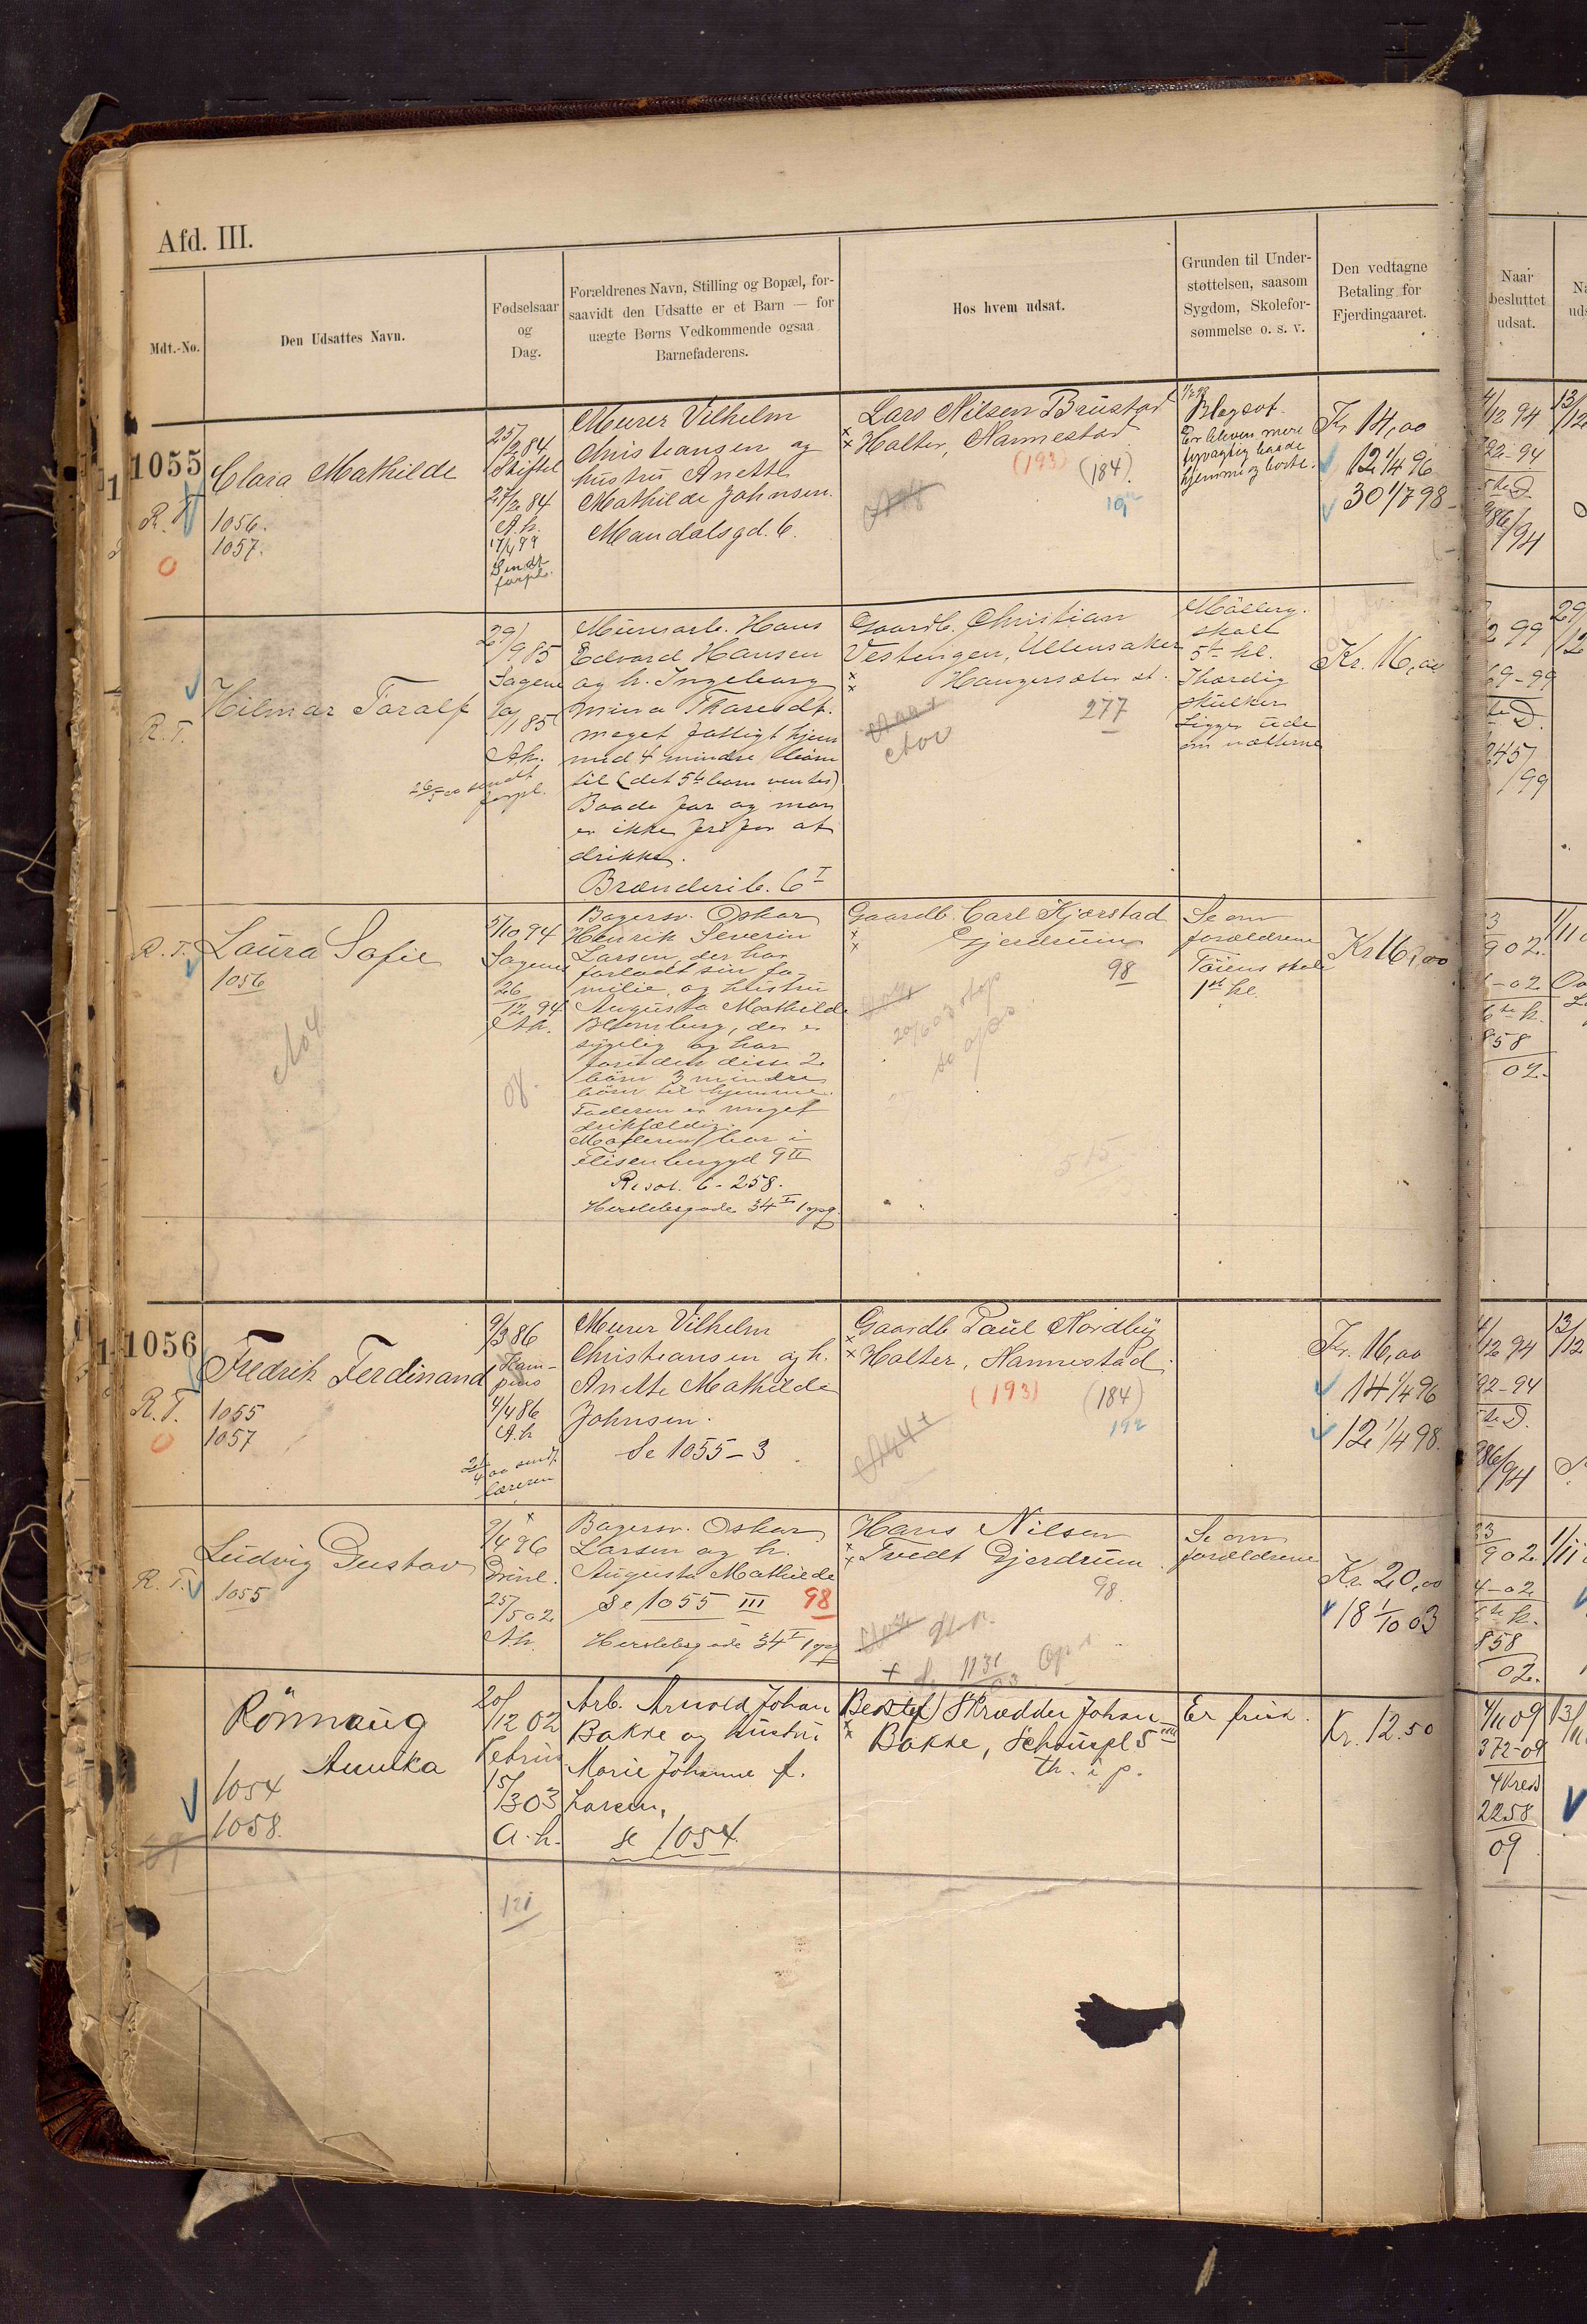 Afd. III.
Mdt.-No.
Den Udsattes Navn.
Fødselsaar
og
Dag.
Forældrenes Navn, Stilling og Bopæl, for-
saavidt den Udsatte er et Barn — for
uægte Børns Vedkommende ogsaa
Barnefaderens.
Hos hvem udsat.
Grunden til Under-
støttelsen, saasom
Sygdom, Skolefor-
sømmelse o. s. v.
Den vedtagne
Betaling for
Fjerdingaaret.
Naar
besluttet
udsat.
1055
R. T.
Clara Mathilde
1056.
1057.
25/2 84
27/2 84
A.h.
17/4 99
Sendt
forpl.
Murer Vilhelm
Christiansen og
hustru Anette
Mathilde Johnsen.
Mandalsgd. 6.
Lars Nilsen Brustad
Holter, Nannestad
(193)
(184)
Blegsot.
Er bleven mere
hjemme og borte.
Kr. 14,00
12 1/4 96
30 1/7 98
4/12 94
92-94
5te D.
986/94
R. T.
Hilmar Toralf
29/9 85
Sagene
A.h.
sendt
forpl.
Murerarb. Hans
Edvard Hansen
og h. Ingeborg
Mina Tharaldt.
meget fattigt hjem
med 4 mindre börn
til (det 5te barn ventes)
Baade far og mor
er ikke fri for at
drikke.
Brænderib. 6 I
Gaardb. Christian
Vestengen, Ullensaker
Haugersæter st.
277
Möllerg.
skole
5te kl.
Ihærdig
skulker
Ligger ude
om nætterne
Kr. 16,00
69-99
te D.
245/99
R. T.
Laura Sofie
1056
5/10 94
Sagenes
26/12 94
A.h.
08.
Bagersv. Oskar
Henrik Severin
Larsen, der har
forladt sin fa-
milie, og hustru
Augusta Mathilde
Blomberg, der er
sygelig og har
foruden disse 2
börn 3 mindre
börn til hjemme.
Faderen er meget
drikfældig.
Moderen bor i
Elisenberggd 9 II
Resol. 6-258.
Herslebsgade 34 I 1 opg.
Gaardb. Carl Kjærstad
Gjerdrum
98
20/6 03 stop
515
Se om
forældrene
Töiens skole
1ste kl.
Kr 16,00
858
02.
1056
R. T.
Fredrik Ferdinand
1055
1057
9/3 86
Kam-
pens
4/4 86
A.h
sendt
læreren
Murer Vilhelm
Christiansen og h.
Anette Mathilde
Johnsen.
Se 1055-3
Gaardb Paul Nordby
Holter, Nannestad.
(193)
(184)
192
Kr. 16,00
14 1/4 96
12 1/4 98.
4/12 94
92-94
5te D.
986/94
R. T.
Ludvig Gustav
1055
2/4 96
25/5 02
A.h.
Bagersv. Oskar
Larsen og h.
Augusta Mathilde
Se 1055 III
98
Herslebsgade 34 I 1 opg
Hans Nilsen
Tvedt Gjerdrum.
98.
Se om
forældrene
Kr. 20,00
18 1/10 03
858
02.
Rönnaug
Annika
1054
1058.
20/12 02
Petrus
15/3 03
a.h.
121
Arb. Arnold Johan
Bakke og hustru
Marie Johanne f.
Larsen,
se 1054
Bestef. Skrædder Johan
Bakke, Schouspl 5
th. i p.
Er frisk.
Kr. 12.50
4/11 09
372-09
4 Kreds
2258
09